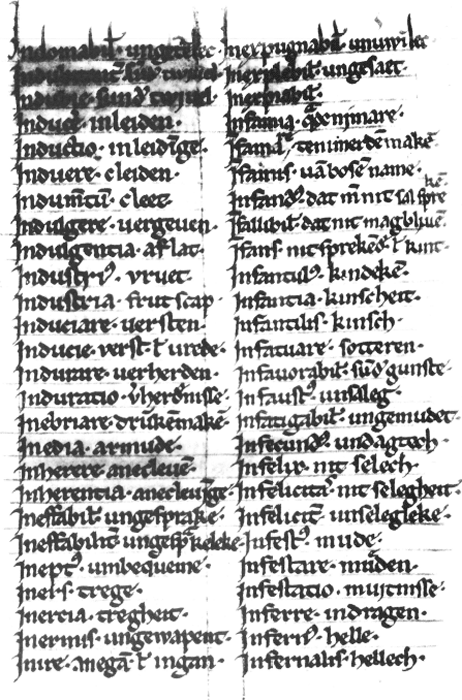 Indomabil᷒ · ungetēēt
Inducere · inleiden ·
Inductio · inleidīge ·
Induere · cleiden ·
Indumētū · cleet
Indulgere · uergeuen ·
Indulgentia · aflat ·
Industriꝰ · vruet ·
Industria · frutscap ·
Induciare · uersten ·
Inducie · verst ł vrede ·
Indurare · uerherden ·
Induratio · v̄herdnisse ·
Inebriare · drūkēmakē
Inedia · armude ·
Inherere · anecleuē
Inherentia · anecleuīge ·
Ineffabil᷒ · ungesprake ·
Ineffabilit᷒ · ungesp̄keleke
Ineptꝰ · umbequeme ·
Iners · trege ·
Inercia · tregheit ·
Inermis · ungewapent ·
Inire · anegā ł ingan ·
Inexpugnabil᷒ ·
Inexplebil᷒ · ungesaet ·
Inexpiabil᷒ ·
Infamia ·
Infamare · tenimerdē makē
Īfamis · uā bosen name ·
Infandꝰ · dat mē nit sal spre
kē ·
Īfallibil᷒ · dat nit mag bliuē
Īfans · nit sprekēd ł kint ·
Infantulꝰ · kindekē ·
Infantia · kinscheit ·
Infantilis · kinsch ·
Infatuare · sotteren ·
Infauorabil᷒ · sūd gunste ·
Infaustꝰ · unsaleg ·
Infatigabil᷒ · ungemudet ·
Infecundꝰ · undragtech
Infelix · nit selech ·
Infelicitas · nit selegheit ·
Infelicit᷒ · unselegleke ·
Infestꝰ · mude ·
Infestare · mūden ·
Infestatio · muytnisse ·
Inferre · indragen ·
Inferiꝰ · helle ·
Infernalis · hellech ·